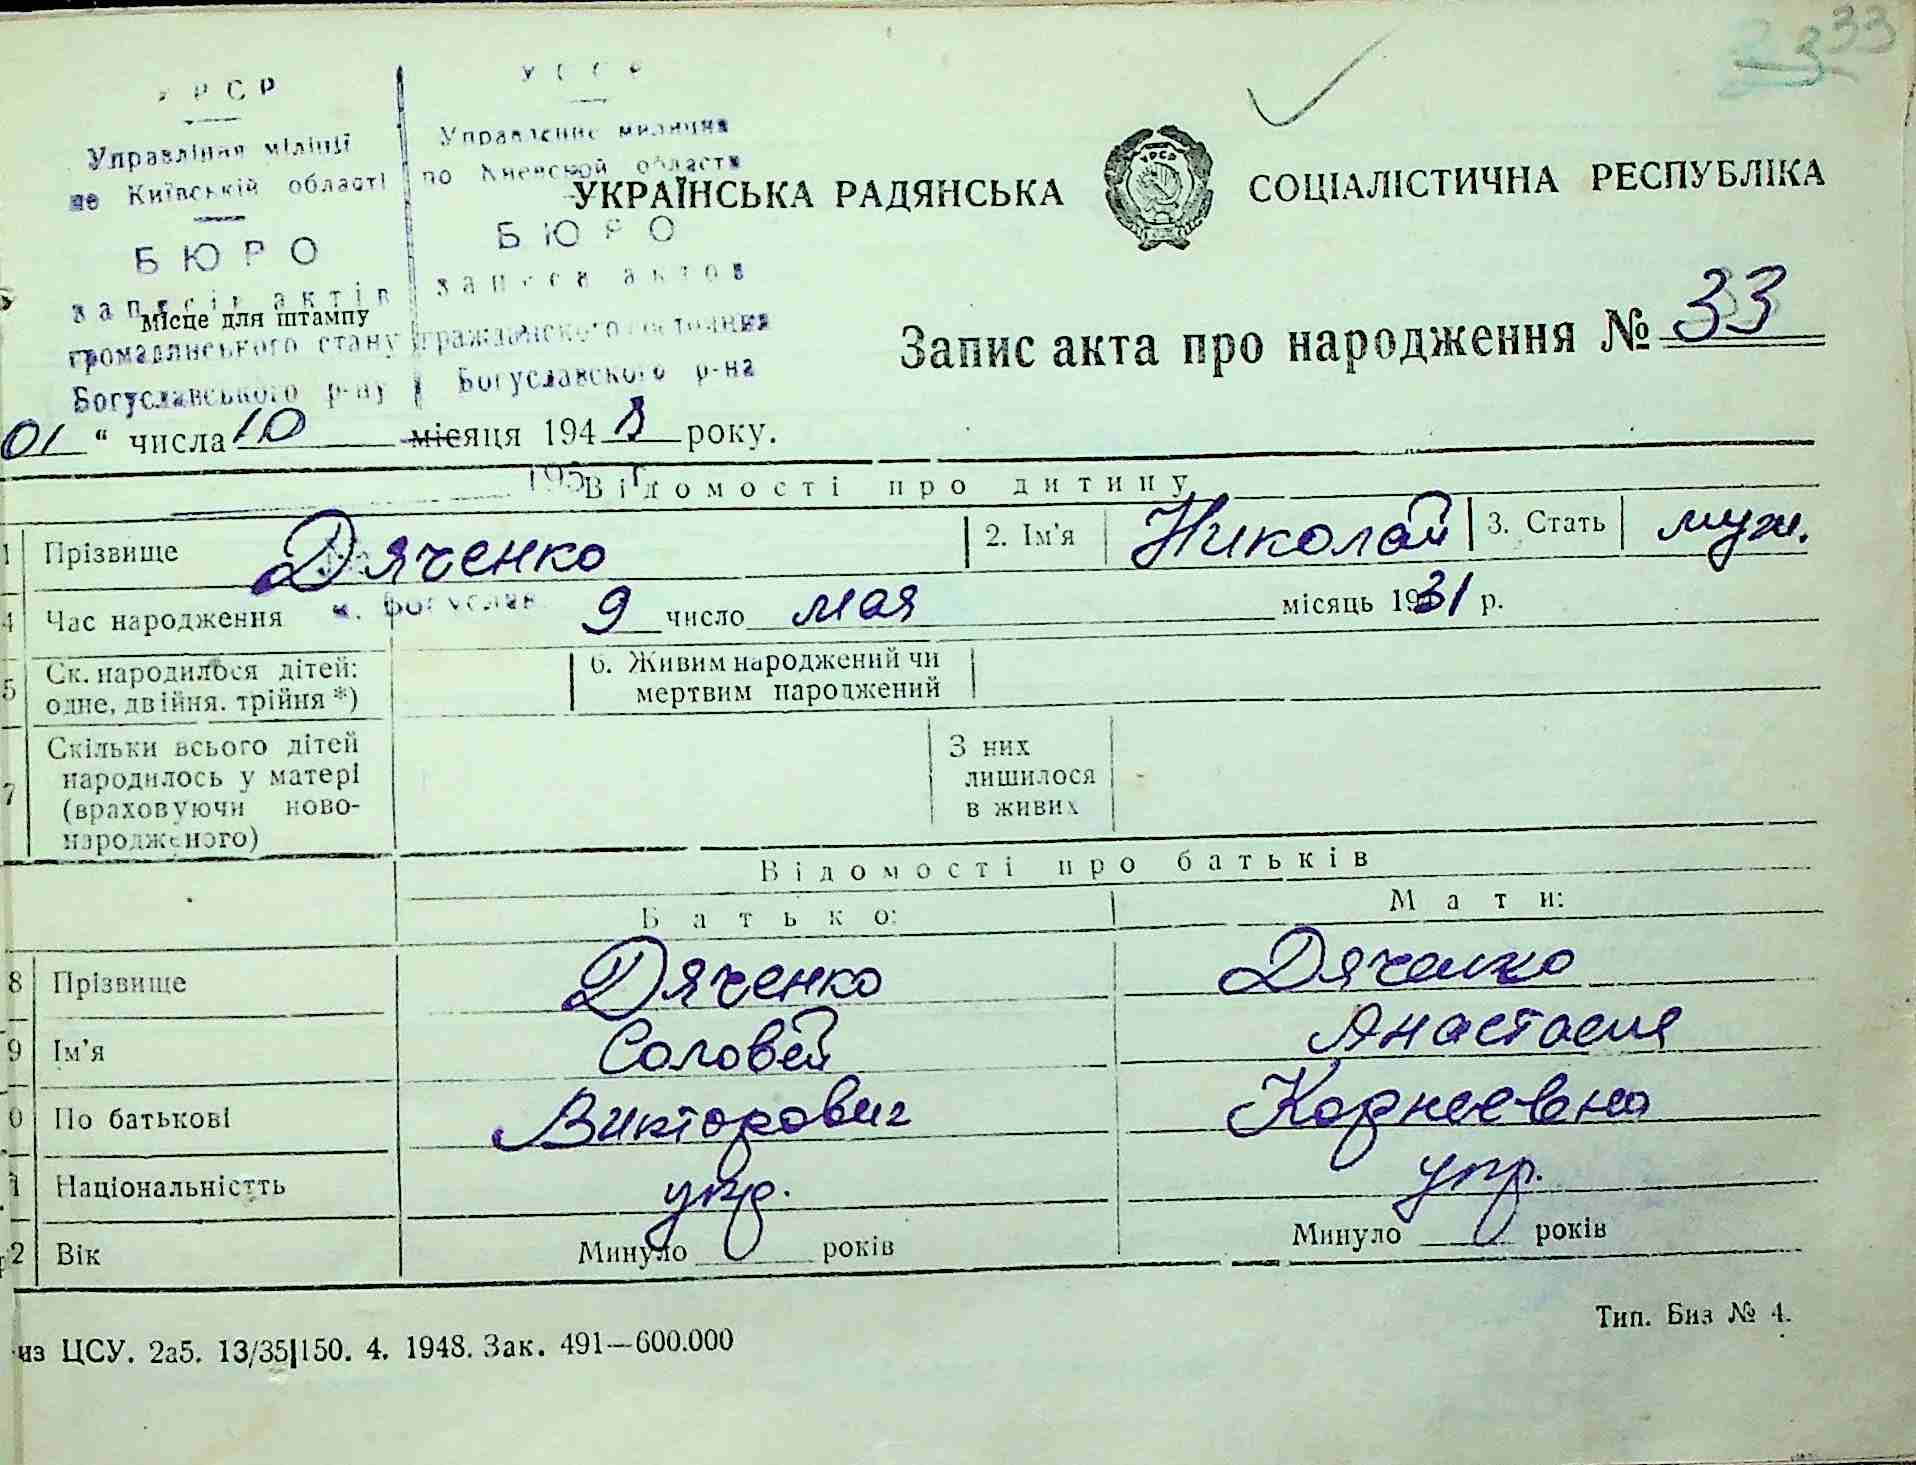 33
3
УРСР
УССР
Управління міліції
по Київській області
Управление милиции
по Киевской области
БЮРО
БЮРО
записів актів
записа актов
Місце для штампу
громадянського стану
гражданского состояния
Богуславського р-ну
Богуславского р-на
УКРАЇНСЬКА РАДЯНСЬКА СОЦІАЛІСТИЧНА РЕСПУБЛІКА
УРСР
Запис акта про народження № 33
01 " числа 10 місяця 1948 року.
195 г
Відомості про дитину
1 Прізвище Дяченко 2. Ім'я Николай 3. Стать муж.
м. Богуслав
4 Час народження 9 число мая місяць 1931 р.
5 Ск. народилося дітей: одне, двійня, трійня *) 6. Живим народжений чи мертвим народжений
7 Скільки всього дітей народилось у матері (враховуючи ново-народженого) З них лишилося в живих
Відомості про батьків
Батько: Мати:
8 Прізвище Дяченко Дяченко
9 Ім'я Соловей Анастасия
0 По батькові Викторович Корнеевна
1 Національністть укр. укр.
2 Вік Минуло років Минуло років
из ЦСУ. 2а5. 13/35|150. 4. 1948. Зак. 491—600.000
Тип. Биз № 4.